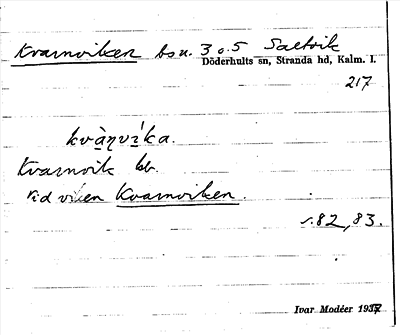 Kvarnviken bsn. 3 o. 5 Saltvik
Döderhults sn, Stranda hd, Kalm. l.
217
kvὰɳvíka.
Kvarnvik bb.
vid viken Kvarnviken.
s. 82, 83.
Ivar Modéer 1937